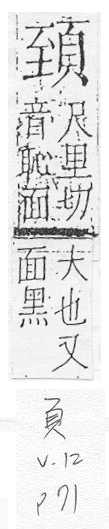 尺里切大也又
音恥面面黑
頁
v.12
p71